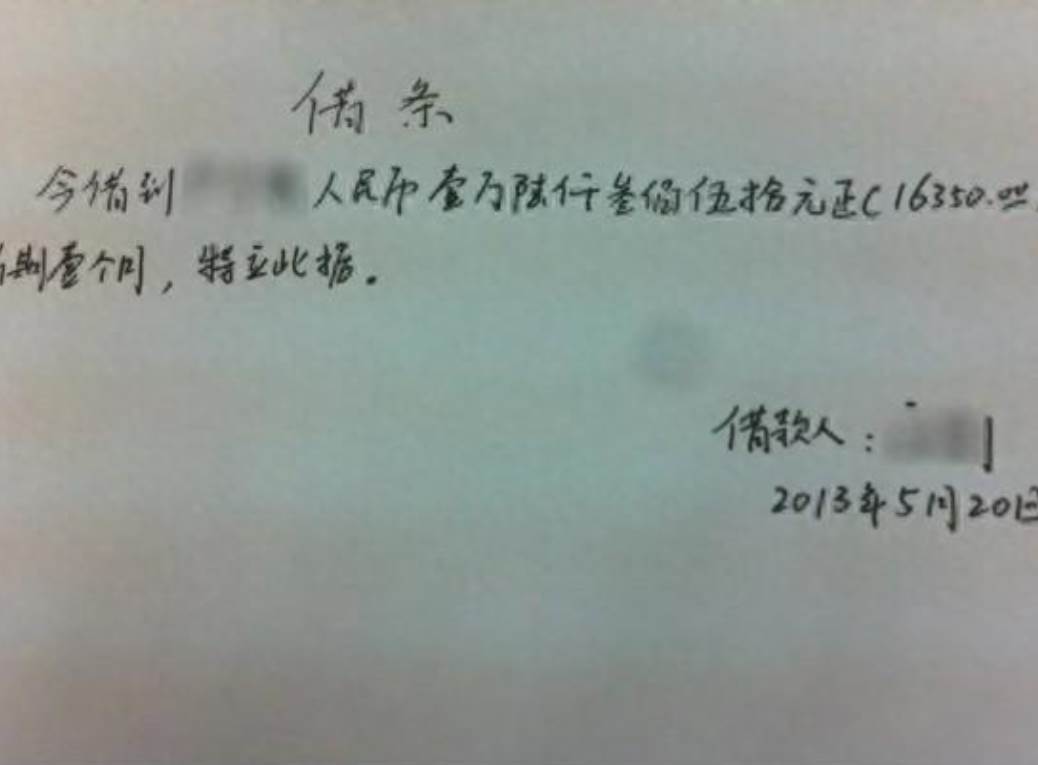 借条
今借到 人民币壹万陆仟叁佰伍拾元正(16350.00
期壹个月,特立此据。
借款人:
2013年5月20日